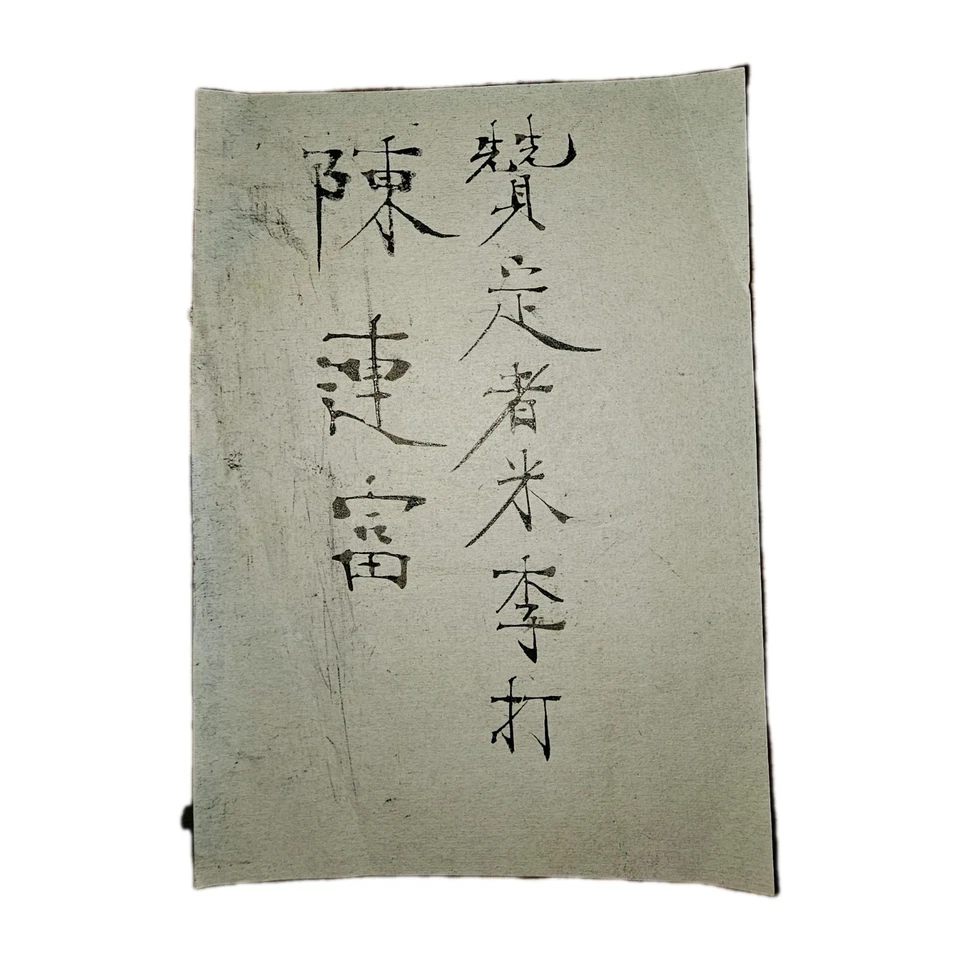 贊定者米李打
陳連富